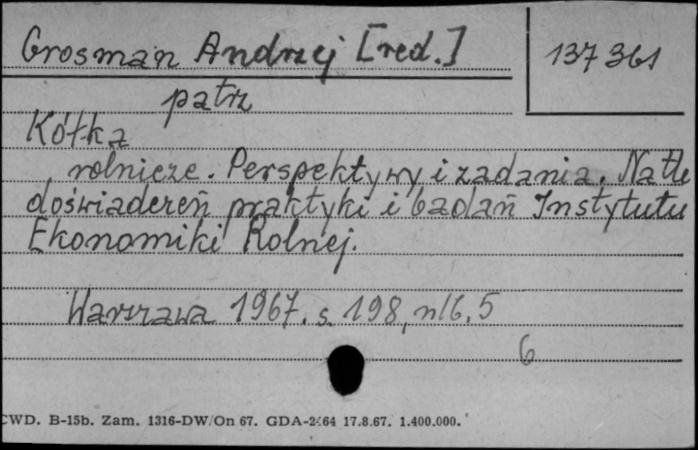 Grosman Andrzej [red.]
137 361
patrz
Kółka
rolnicze. Perspektywy i zadania. Na tle
doświadczeń praktyki i badań Instytutu
Ekonomiki Rolnej.
Warszawa 1967. s. 198, nlb. 5
6
CWD. B-15b. Zam. 1316-DW/On 67. GDA-2464 17.8.67. 1.400.000.